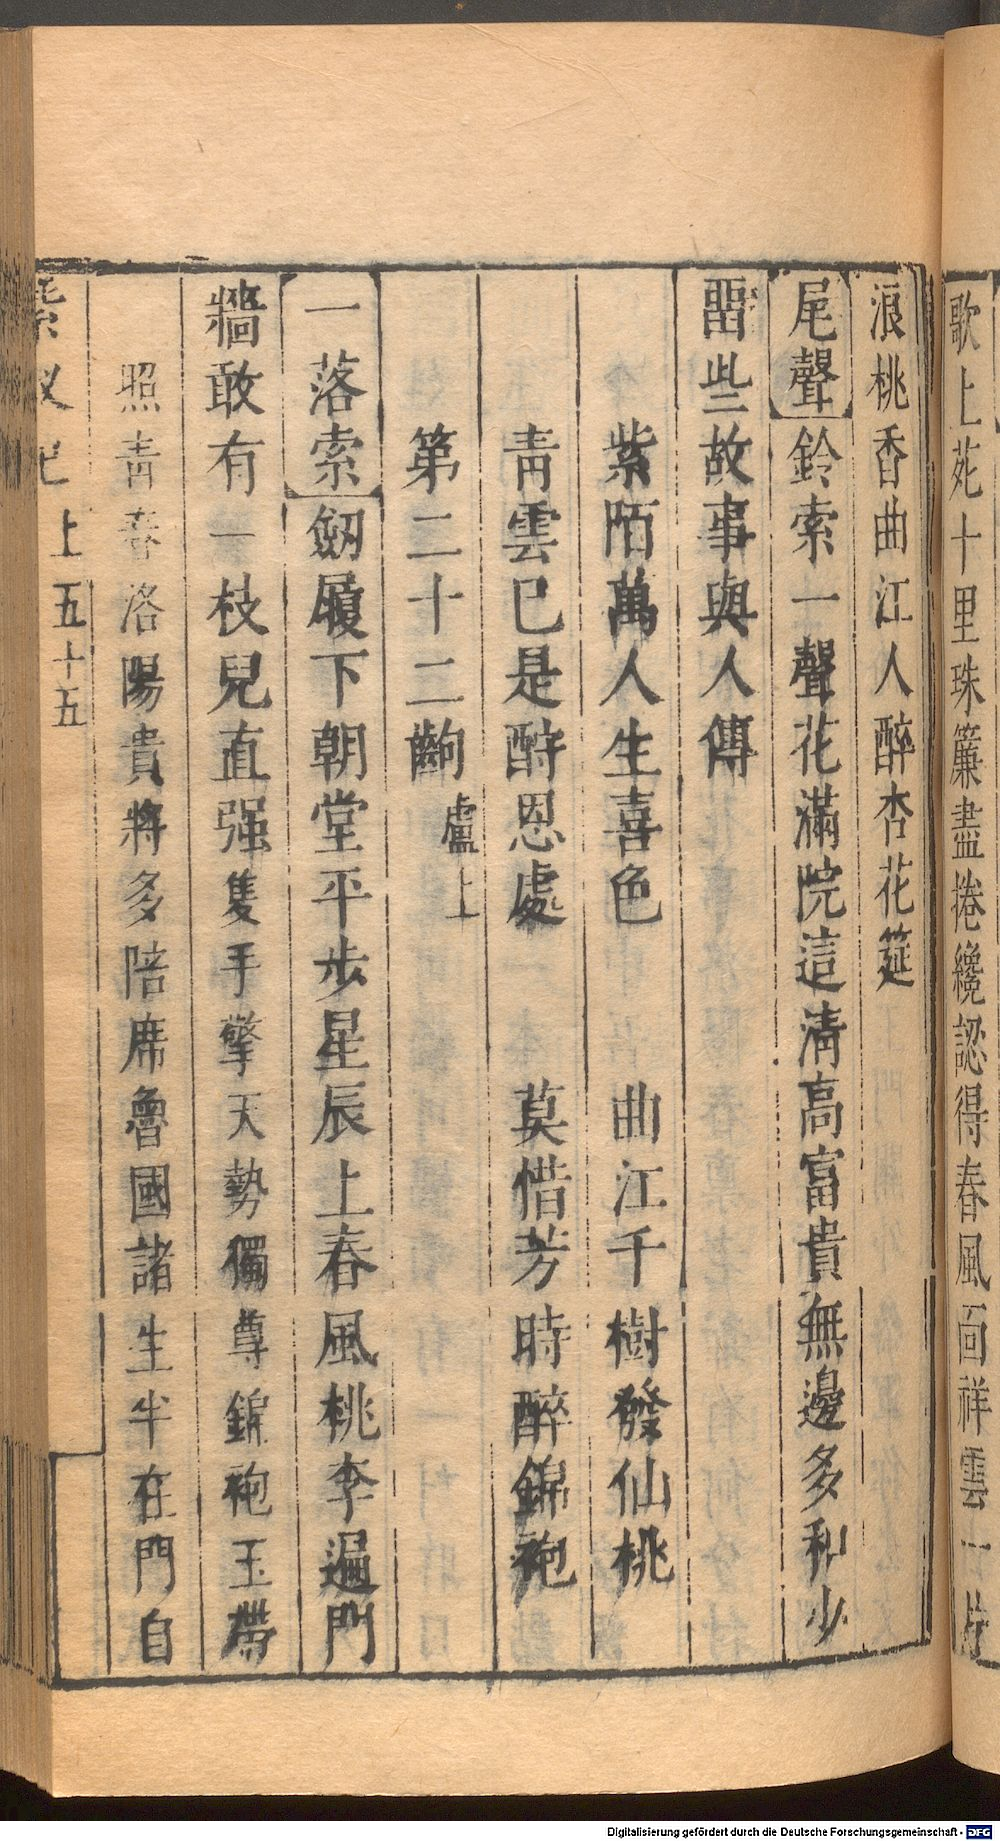 歌上苑十里珠簾盡捲纔認得春風面祥雲一片
浪桃香曲江人醉杏花筵
尾聲鈴索一聲花滿院這清高富貴無邊多和少
畱些故事與人傳
紫陌萬人生喜色 曲江千樹發仙桃
青雲已是酧恩處 莫惜芳時醉錦袍
第二十二齣 盧上
一落索劔履下朝堂平步星辰上春風桃李遍門
牆敢有一枝兒直强隻手擎天勢獨尊錦袍玉帶
照青春洛陽貴將多陪席魯國諸生半在門自
紫釵記 上 五十五
Digitalisierung gefördert durch die Deutsche Forschungsgemeinschaft - DFG